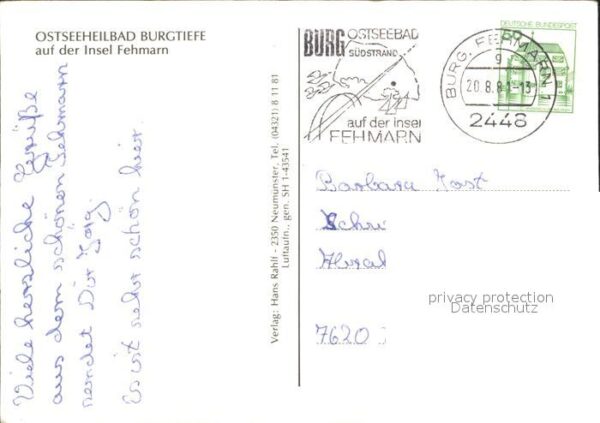 OSTSEEHEILBAD BURGTIEFE
auf der Insel Fehmarn
Viele herzliche Grüße
aus dem schönen Fehmarn
sendet Dir Jörg.
Es ist sehr schön hier.
Verlag: Hans Rahlf - 2350 Neumünster, Tel. (04321) 8 11 81
Luftaufn., gen. SH 1-43541
BURG OSTSEEBAD
SÜDSTRAND
auf der insel
FEHMARN
BURG, FEHMARN 1
g
20.8.8 -13
2448
DEUTSCHE BUNDESPOST
50
Barbara Jost
7620
privacy protection
Datenschutz